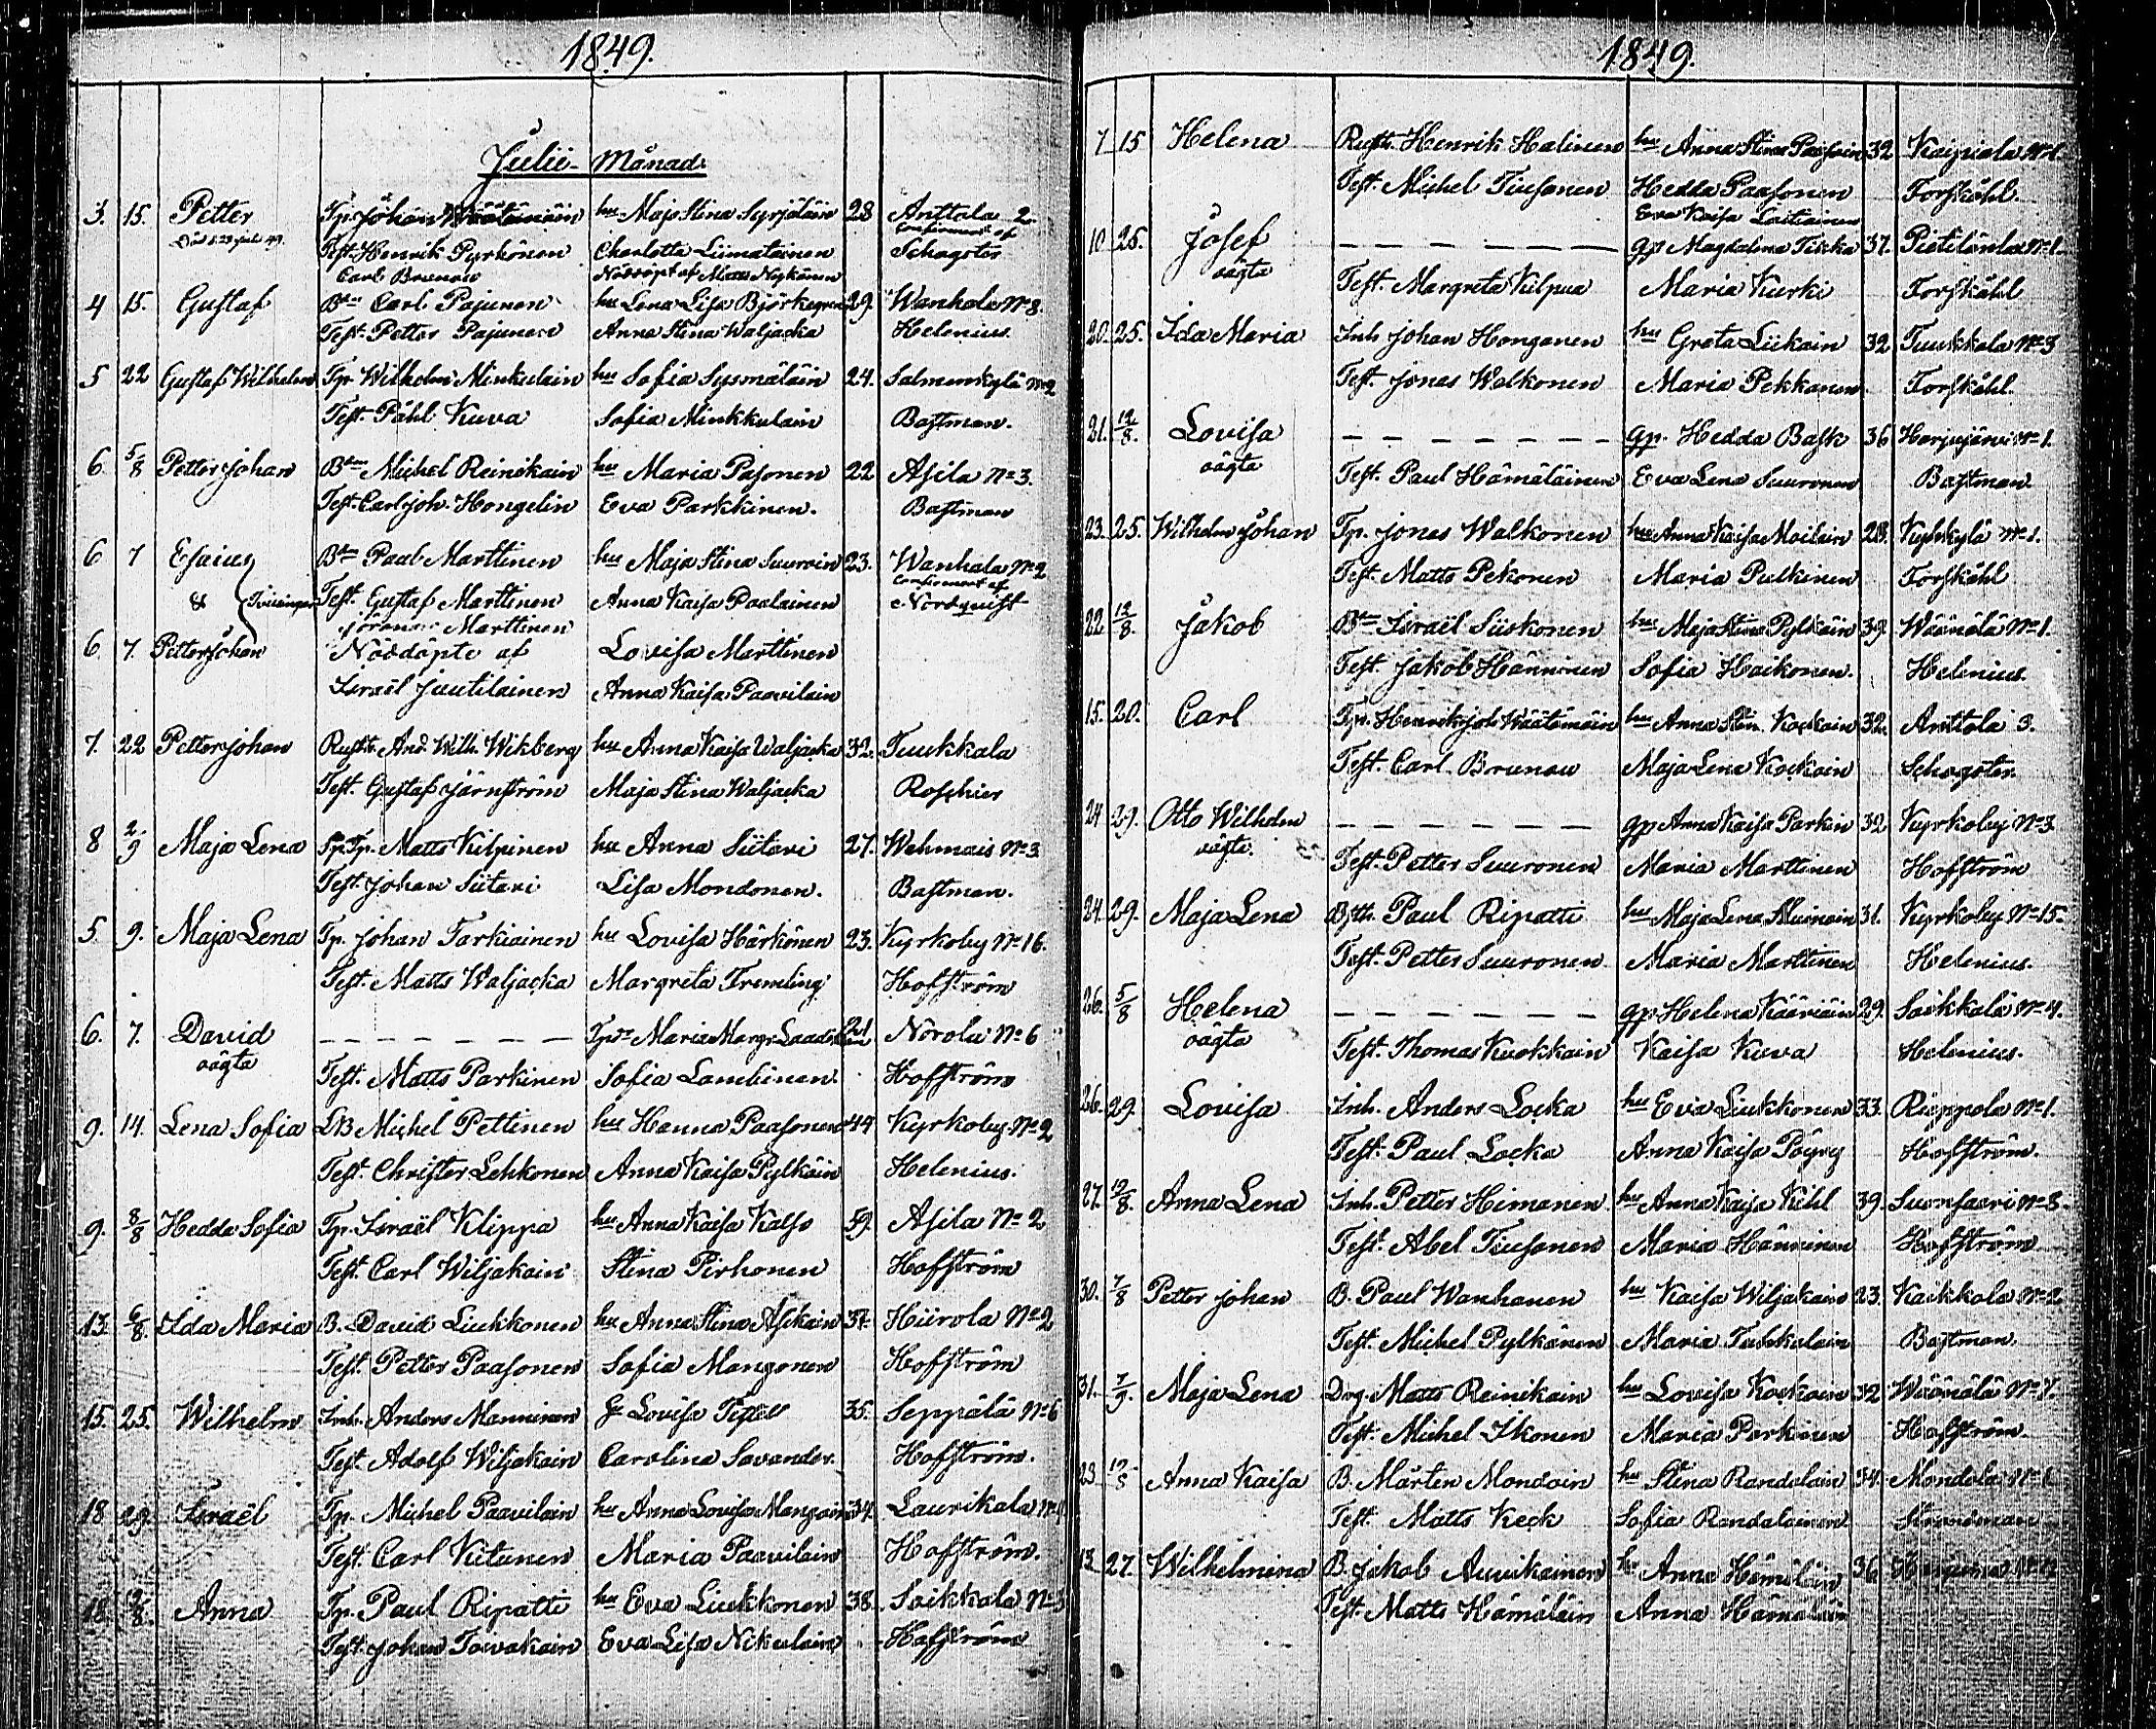 1849.
Julii Månad:
3. 15. Petter Tp. Johan Wäätämäin hu Maja Stina Syrjäläin 28 Anttola 2.
Död d. 23 Juli 49. Test. Henrik Pyrhönen Charlotta Liimatainen confirmerat af Schogster
Carl Brunou Nöddöpt af Matts Nykänen
4 15. Gustaf Bdn Carl Pajunen hu Lena Lisa Björkegren 29. Wanhala No 8.
Test. Petter Pajunen Anna Stina Waljacka Helenius.
5 22 Gustaf Wilhelm Tp. Wilhelm Minkulain hu Sofia Sysmäläin 24. Salmenkylä No 2
Test. Påhl Kuva Sofia Minkkulain Bastman.
6. 5/8 Petter Johan Bdn Michel Reinikain hu Maria Pasonen 22 Asila No 3.
Test. Carl Joh. Hongelin Eva Parkkinen. Bastman
6 7 Esaias Bdn Paul Marttinen hu Maja Stina Suuroin 23. Wanhala No 2
& Tvillingar Test. Gustaf Marttinen Anna Kaisa Paalainen confirmerat af Nordquist
Marttinen
6. 7. Petter Johan Nöddöpte af Lovisa Marttinen
Israël Juutilainen Anna Kaisa Paavilain
7. 22 Petter Johan Rusth. And. Wilh. Wikberg hu Anna Kaisa Waljacka 32. Tuukkala
Test. Gustaf Järnström Maja Stina Waljacka Roschier
8 2/9 Maja Lena Tp. Matts Kilpinen hu Anna Siitari 27. Wehmais No 3
Test. Johan Siitari Lisa Mondonen. Bastman.
5. 9. Maja Lena Tp. Johan Tarkiainen hu Lovisa Härkönen 23. Kyrkoby No 16.
Test. Matts Waljacka Margreta Fremling Hoffström
6. 7. David — — — — — — Maria Margr. 21 Norola No 6
oägta Test. Matts Parkinen Sofia Lambinen. Hoffström
9. 14. Lena Sofia LB Michel Pettinen hu Hanna Paasonen 44 Kyrkoby No 2
Test. Christer Lehkonen Anna Kaisa Pylkäin Helenius.
9. 8/8 Hedda Sofia Tp. Israël Klippa hu Anna Kaisa Kalso 39. Asila No 2
Test. Carl Wiljakain Stina Pirhonen Hoffström
13. 6/8. Ida Maria B. David Liukkonen hu Anna Stina Asikain 37. Hiirola No 2
Test. Petter Paasonen Sofia Mangonen Hoffström
15. 25. Wilhelm Inh. Anders Manninen Lovisa 35. Seppälä No 6
Test. Adolf Wiljakain Carolina Savander. Hoffström.
18 29. Israël Tp. Michel Paavilain hu Anna Lovisa Mangoin 34. Laurikala No
Test. Carl Kitunen Maria Paavilain Hoffström.
18. 12/8. Anna Tp. Paul Ripatti hu Eva Liukkonen 38. Saikkala No 3
Test. Johan Towakain Eva Lisa Nikulain Hoffström
1849.
7 15 Helena Rusth. Henrik Halinen hu Anna Stina Paasoin 32 Kaipiala No 1.
Test. Michel Tiusanen Hedda Paasonen Forsskåhl.
Eva Kaisa Laitiainen
10 25. Josef — — — — — — gp Magdalena Tikka 37. Pietilänlax No 1.
oägta Test. Margreta Kilpua Maria Kurki Forsskåhl
20. 25. Ida Maria Inh Johan Honganen hu Greta Liikain 32 Tuukkala No 3
Test. Jonas Walkonen Maria Pekkanen. Forsskåhl.
21. 12/8. Lovisa — — — — — — gp. Hedda Bask 36 Harjujärvi No 1.
oägta Test. Paul Hämäläinen Eva Lena Suuronen Bastman
23. 25. Wilhelm Johan Tp. Jonas Walkonen hu Anna Kaisa Moilain 28. Kyhkylä No 1.
Test. Matts Pekonen Maria Pulkinen Forsskåhl
22 12/8. Jakob Bdn Israël Siiskonen hu Maja Stina Pylkäin 39. Wäänälä No 1.
Test. Jakob Hänninen Sofia Haikonen. Helenius.
15. 20. Carl Tp. Henrik Joh Wäätämäin hu Anna Stin. Kockain 32. Anttola 3.
Test. Carl Brunou Maja Lena Kockain Schogster.
24 29. Otto Wilhelm — — — — — — gp Anna Kaisa Parkin 32 Kyrkoby No 3
oägta. Test. Petter Suuronen Maria Marttinen Hoffström
24. 29. Maja Lena Paul Ripatti hu Maja Lena 31. Kyrkoby No 15.
Test. Petter Suuronen Maria Marttinen Helenius.
26. 5/8 Helena — — — — — — gp Helena Kääriäin 29. Saikkala No 4.
oägta Test. Thomas Kuokkain Kaisa Kuva Helenius.
26. 29. Lovisa Inh. Anders Locka hu Eva Liukkonen 33. Rieppola No 1.
Test. Paul Locka Anna Kaisa Pöyry Hoffström.
27. 12/8. Anna Lena Inh. Petter Heimanen hu Anna Kaisa Kihl 39. Suonsaari No 3.
Test. Abel Tiusanen Maria Hänninen Hoffström
30. 7/8 Petter Johan B. Paul Wanhanen hu Kaisa Wiljakain 23. Kaikkola No 2
Test. Michel Pylkänen Maria Bastman.
31. 7/9. Maja Lena Drg. Matts Reinikain hu Lovisa Kockain 32 Wäänälä No 7.
Test. Michel Ikonen Maria Parkinen Hoffström.
23 12/8 Anna Kaisa B. Mårten Mondoin hu Stina Randalain 34. Mondola No 1
Test. Matts Keck Sofia Randalainen Strandman
13. 27. Wilhelmina B. Jakob Auvikainen hu Anna Hämäläin 36
Test. Matts Hämäläin Anna Hämäläin